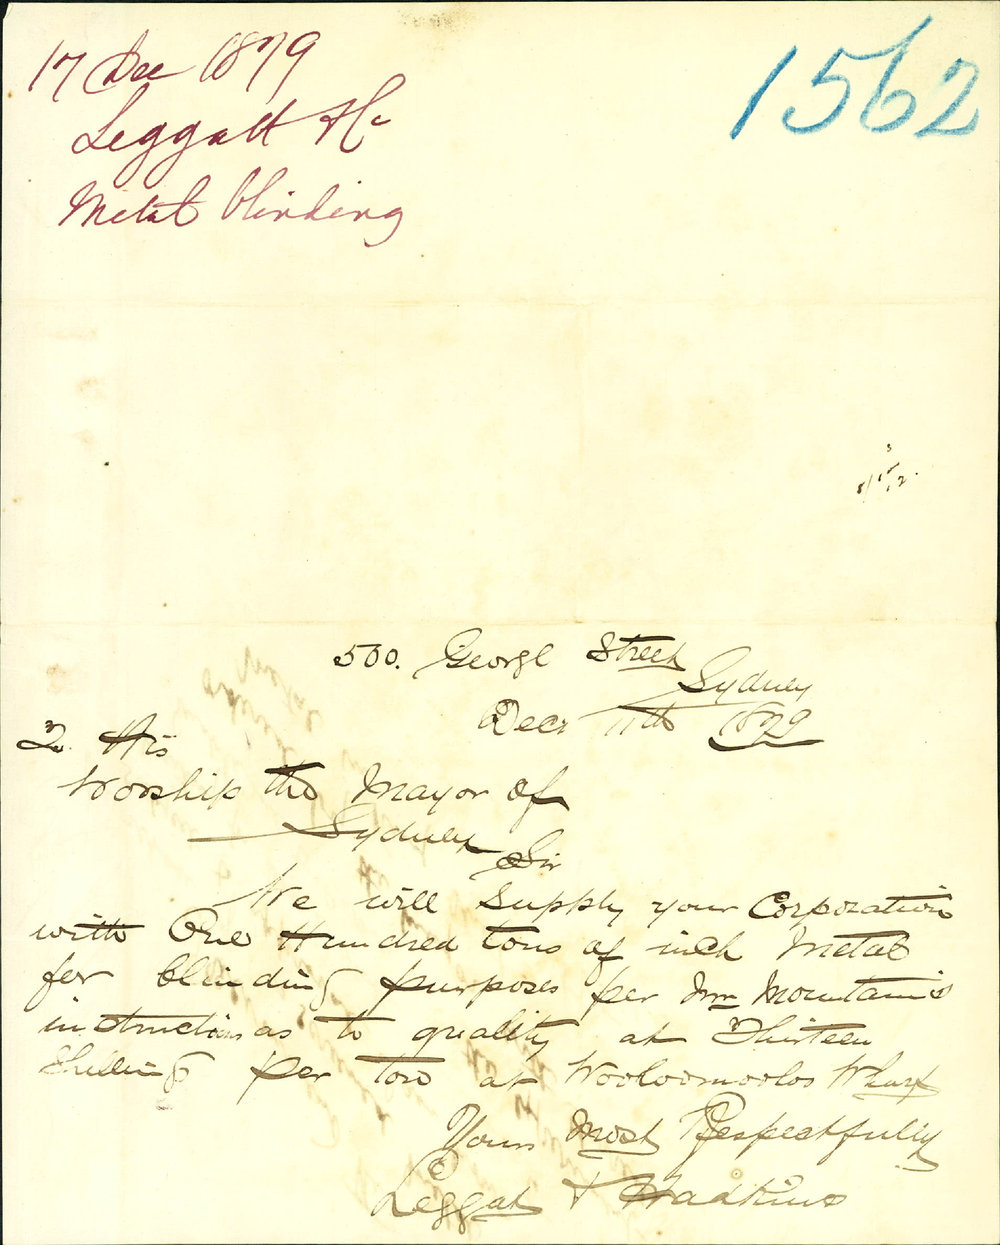 17 Dec 1879
1562
Leggatt Hc
Metal blinding
500. George Street
Sydney
Decr 11th 1879
To His
Worship the Mayor of
Sydney
Sir
We will supply your Corporation
with One Hundred tons of inch Metal
for blinding purposes per Mr Mountain's
instructions as to quality at Thirteen
Shillings per ton at Wooloomooloo Wharf
Yours Most Respectfully
Leggat & Hadkins